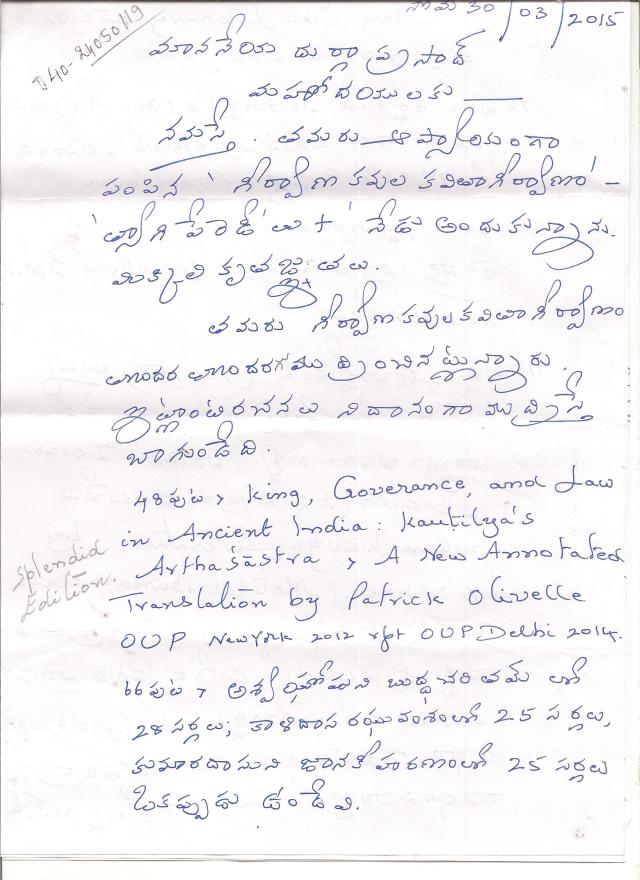 సోమ 30/03/2015
మాననీయ దుర్గాప్రసాద్
మహోదయులకు
నమస్తే. తమరు ఆప్యాయంగా
పంపిన 'గీర్వాణ కవుల కవితాగీర్వాణం' -
'త్యాగి' 'లు + ' నేడు అందుకున్నాను.
మిక్కిలి కృతజ్ఞతలు.
తమరు గీర్వాణకవులకవితాగీర్వాణం
తొందర తొందరగా ముద్రించినట్లున్నారు.
ఇట్లాంటి రచనలు నిదానంగా ముద్రిస్తే
బాగుండేది.
48 పుట > King, Goverance, and Law
in Ancient India: Kautilya's
Arthaśāstra > A New Annotated
Translation by Patrick Olivelle
OUP NewYork 2012 rpt OUP Delhi 2014.
Splendid
Edition.
66 పుట > అశ్వఘోషుని బుద్ధచరితమ్ లో
28 సర్గలు; కాళిదాస రఘువంశంలో 25 సర్గలు,
కుమారదాసుని జానకీహరణంలో 25 సర్గలు
ఒకప్పుడు ఉండేవి.